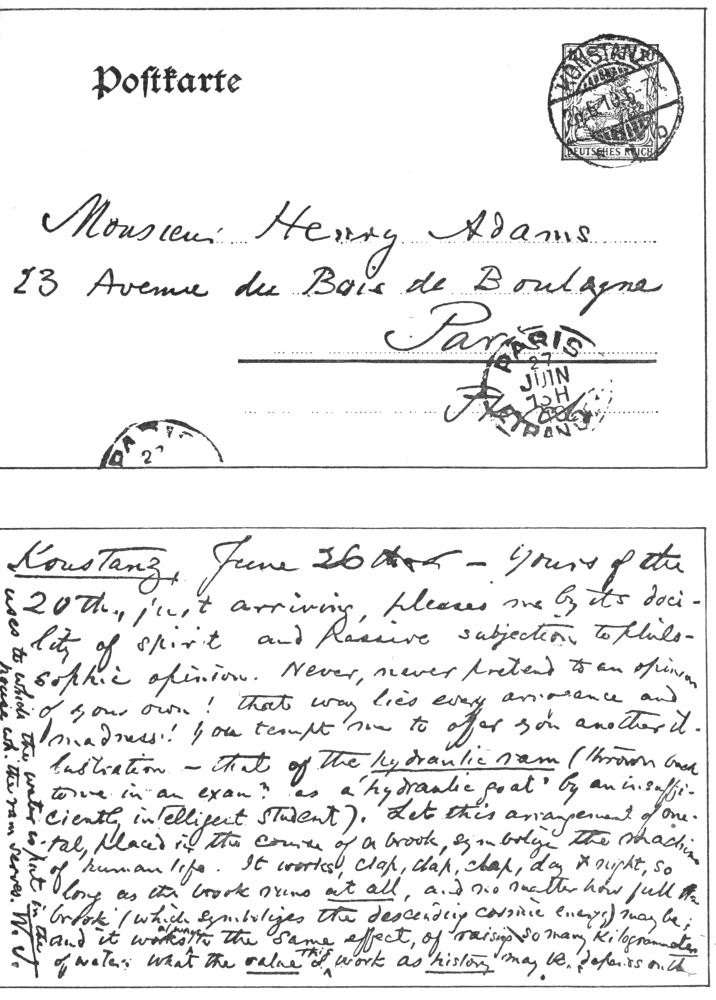 Postkarte
KONSTANZ
DEUTSCHES REICH
Monsieur Henry Adams
23 Avenue du Bois de Boulogne
Paris
PARIS
27
JUIN
ETRANGER
Konstanz, June 26 – Yours of the
20th, just arriving, pleases me by its doci-
lity of spirit and passive subjection to philo-
sophic opinion. Never, never pretend to an opinion
of your own! that way lies every annoyance and
madness! You tempt me to offer you another il-
lustration – that of the hydraulic ram (thrown back
to me in an exam? as a 'hydraulic goat' by an insuffi-
ciently intelligent student). Let this arrangement of me-
tal, placed in the course of a brook, symbolize the machine
of human life. It works, clap, clap, clap, day & night, so
long as the brook runs at all, and no matter how full the
brook (which symbolizes the descending cosmic energy) may be;
and it works always to the same effect, of raising so many kilogrammeters
of water. What the value of this work as history may be, depends on the
uses to which the water is put in the
house wh. the ram serves. W. J.